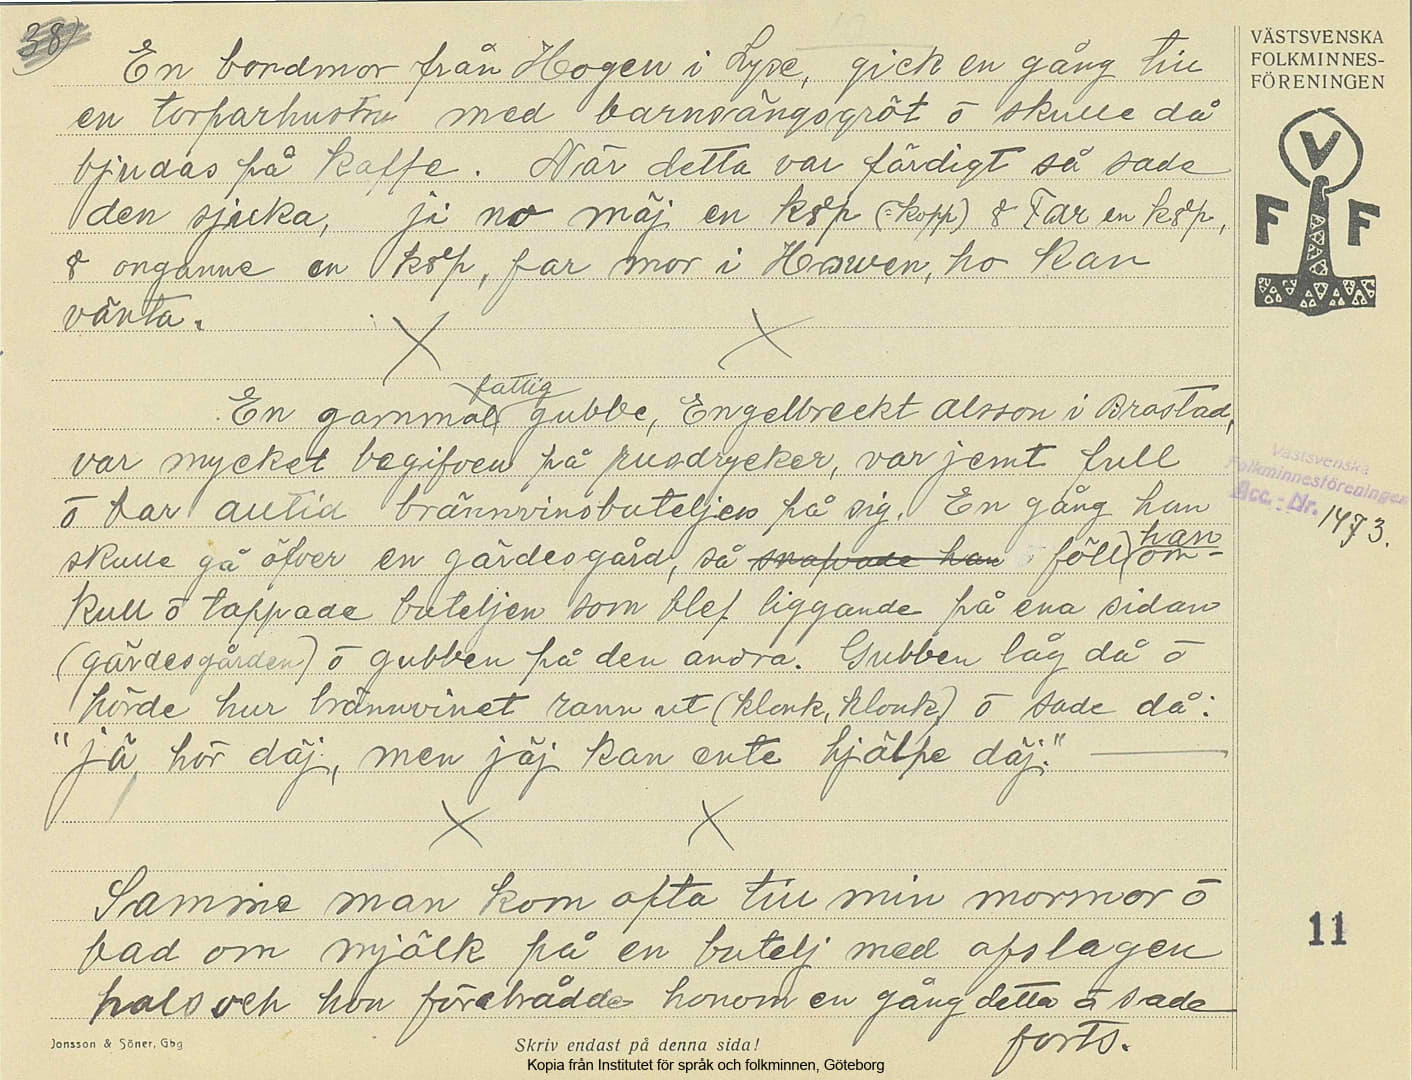 38)
VÄSTSVENSKA
FOLKMINNES-
FÖRENINGEN
V
F F
En bondmor från Hogen i Lyse, gick en gång till
en torparhustru med barnsängsgröt ō skulle då
bjudas på kaffe. När detta var färdigt så sade
den sjuka, ji no mäj en køp (=kopp) & Far en køp,
& onganne en køp, far mor i Hawen, ho kan
vänta.
fattig
En gammal gubbe, Engelbreckt Alsson i Brastad,
var mycket begifven på rusdrycker, var jemt full
ō bar alltid brännvinsbuteljen på sig. En gång han
skulle gå öfver en gärdesgård, så snafvade han föll han om-
kull ō tappade buteljen som blef liggande på ena sidan
(gärdesgården) ō gubben på den andra. Gubben låg då ō
hörde hur brännvinet rann ut (klonk, klonk,) ō sade då:
"jä hör däj, men jäj kan ente hjälpe däj."
Samme man kom ofta till min mormor ō
bad om mjölk på en butelj med afslagen
hals och hon förebrådde honom en gång detta ō sade
forts.
Västsvenska
Folkminnesföreningen
Acc.-Nr. 1473.
11
Jonsson & Söner, Gbg
Skriv endast på denna sida!
Kopia från Institutet för språk och folkminnen, Göteborg